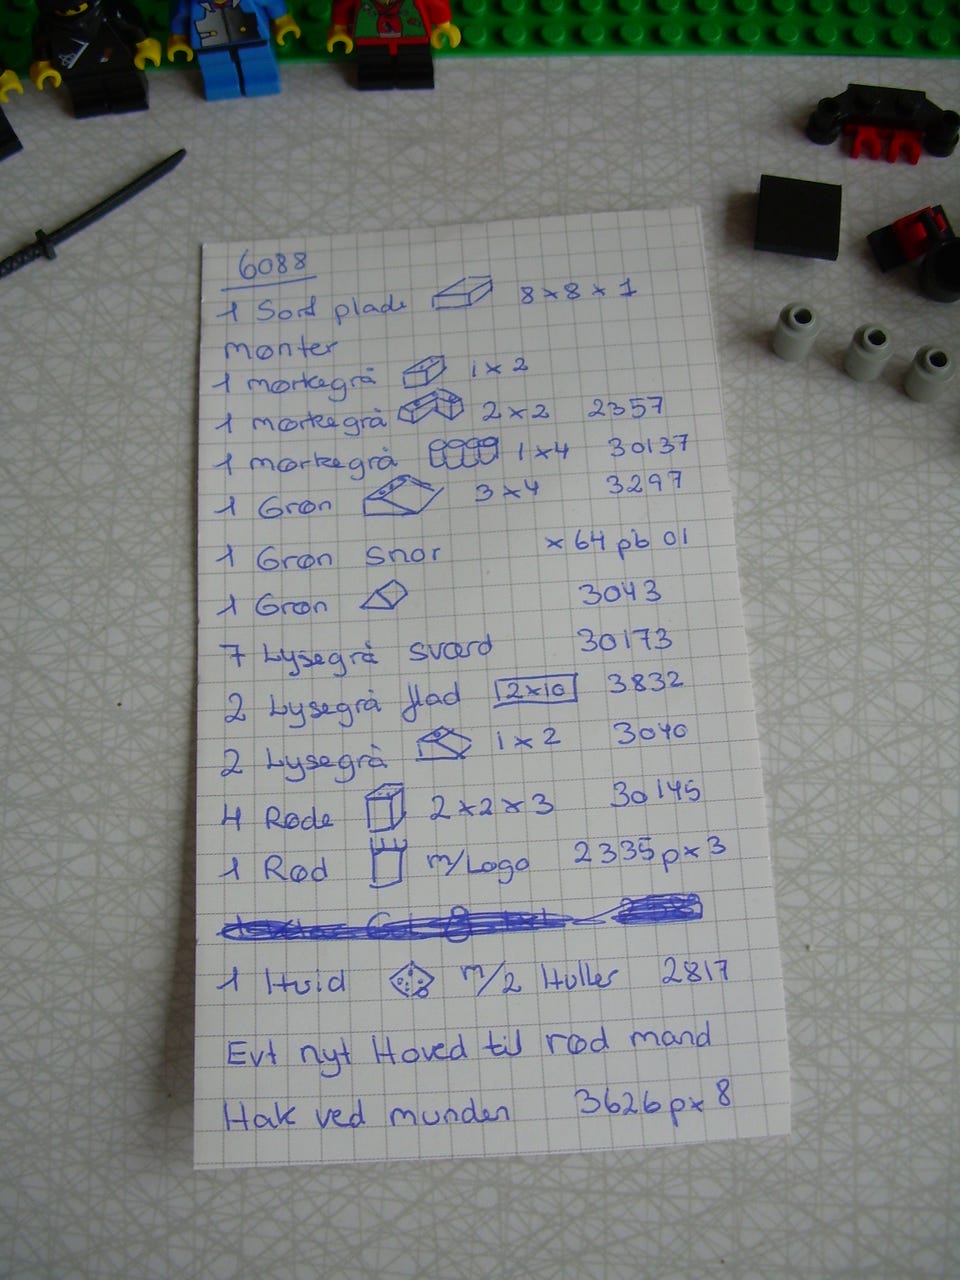 6088
1 Sort plade 8x8x1
monter
1 mørkegrå 1x2
1 mørkegrå 2x2 2357
1 mørkegrå 1x4 30137
1 Grøn 3x4 3297
1 Grøn Snor x64pb01
1 Grøn 3043
7 Lysegrå sværd 30173
2 Lysegrå flad 2x10 3832
2 Lysegrå 1x2 3040
4 Røde 2x2x3 30145
1 Rød m/Logo 2335px3
1 Hvid m/2 Huller 2817
Evt nyt Hoved til rød mand
Hak ved munden 3626px8